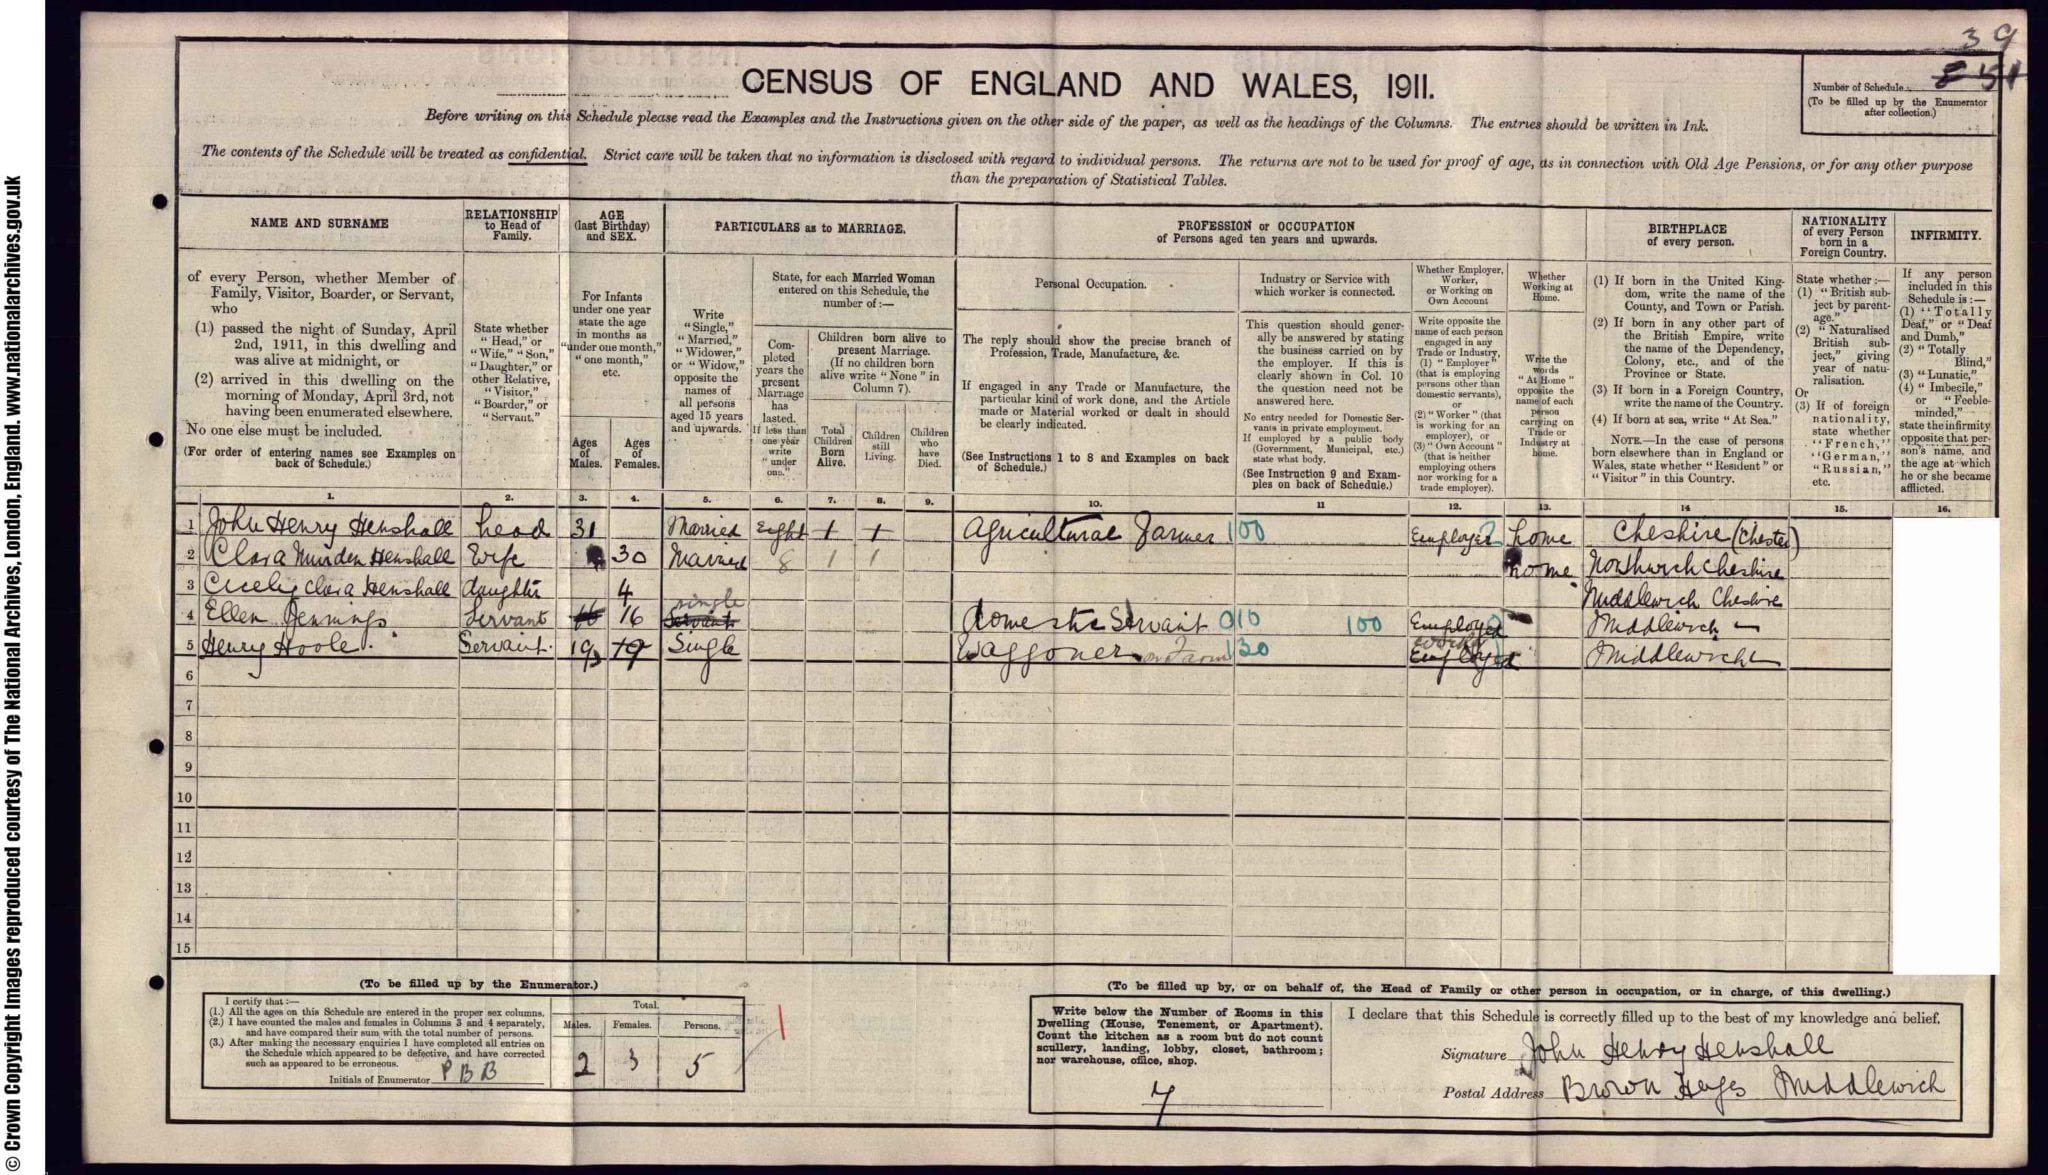 39
CENSUS OF ENGLAND AND WALES, 1911.
Number of Schedule
851
(To be filled up by the Enumerator
after collection.)
Before writing on this Schedule please read the Examples and the Instructions given on the other side of the paper, as well as the headings of the Columns. The entries should be written in Ink.
The contents of the Schedule will be treated as confidential. Strict care will be taken that no information is disclosed with regard to individual persons. The returns are not to be used for proof of age, as in connection with Old Age Pensions, or for any other purpose
than the preparation of Statistical Tables.
NAME AND SURNAME
of every Person, whether Member of
Family, Visitor, Boarder, or Servant,
who
(1) passed the night of Sunday, April
2nd, 1911, in this dwelling and
was alive at midnight, or
(2) arrived in this dwelling on the
morning of Monday, April 3rd, not
having been enumerated elsewhere.
No one else must be included.
(For order of entering names see Examples on
back of Schedule.)
RELATIONSHIP
to Head of
Family.
State whether
"Head," or
"Wife," "Son,"
"Daughter," or
other Relative,
"Visitor,"
"Boarder," or
"Servant."
AGE
(last Birthday)
and SEX.
For Infants
under one year
state the age
in months as
"under one month,"
"one month,"
etc.
Ages
of
Males.
Ages
of
Females.
PARTICULARS as to MARRIAGE.
Write
"Single,"
"Married,"
"Widower,"
or "Widow,"
opposite the
names of
all persons
aged 15 years
and upwards.
State, for each Married Woman
entered on this Schedule, the
number of:—
Com-
pleted
years the
present
Marriage
has
lasted.
If less than
one year
write
"under
one."
Children born alive to
present Marriage.
(If no children born
alive write "None" in
Column 7).
Total
Children
Born
Alive.
Children
still
Living.
Children
who
have
Died.
PROFESSION or OCCUPATION
of Persons aged ten years and upwards.
Personal Occupation.
The reply should show the precise branch of
Profession, Trade, Manufacture, &c.
If engaged in any Trade or Manufacture, the
particular kind of work done, and the Article
made or Material worked or dealt in should
be clearly indicated.
(See Instructions 1 to 8 and Examples on back
of Schedule.)
Industry or Service with
which worker is connected.
This question should gener-
ally be answered by stating
the business carried on by
the employer. If this is
clearly shown in Col. 10
the question need not be
answered here.
No entry needed for Domestic Ser-
vants in private employment.
If employed by a public body
(Government, Municipal, etc.)
state what body.
(See Instruction 9 and Exam-
ples on back of Schedule.)
Whether Employer,
Worker,
or Working on
Own Account
Write opposite the
name of each person
engaged in any
Trade or Industry,
(1) "Employer"
(that is employing
persons other than
domestic servants),
or
(2) "Worker" (that
is working for an
employer), or
(3) "Own Account"
(that is neither
employing others
nor working for a
trade employer).
Whether
Working at
Home.
Write the
words
"At Home"
opposite the
name of each
person
carrying on
Trade or
Industry at
home.
BIRTHPLACE
of every person.
(1) If born in the United King-
dom, write the name of the
County, and Town or Parish.
(2) If born in any other part of
the British Empire, write
the name of the Dependency,
Colony, etc., and of the
Province or State.
(3) If born in a Foreign Country,
write the name of the Country.
(4) If born at sea, write "At Sea."
NOTE.—In the case of persons
born elsewhere than in England or
Wales, state whether "Resident" or
"Visitor" in this Country.
NATIONALITY
of every Person
born in a
Foreign Country.
State whether:—
(1) "British sub-
ject by parent-
age."
(2) "Naturalised
British sub-
ject," giving
year of natu-
ralisation.
Or
(3) If of foreign
nationality,
state whether
"French,"
"German,"
"Russian,"
etc.
INFIRMITY.
If any person
included in this
Schedule is:—
(1) "Totally
Deaf," or "Deaf
and Dumb,"
(2) "Totally
Blind,"
(3) "Lunatic,"
(4) "Imbecile,"
or "Feeble-
minded,"
state the infirmity
opposite that per-
son's name, and
the age at which
he or she became
afflicted.
1. 2. 3. 4. 5. 6. 7. 8. 9. 10. 11 12. 13. 14 15. 16.
1 John Henry Henshall head 31 Married Eight 1 1 Agricultural Farmer 100 Employer 2 home Cheshire (Chester)
2 Clara Murden Henshall Wife 30 Married 8 1 1 home Northwich Cheshire
3 Cicely Clara Henshall daughter 4 Middlewich Cheshire
4 Ellen Jennings Servant 16 16 single Servant domestic Servant 010 100 Employed Middlewich
5 Henry Hoole. Servant. 19 19 Single Waggoner on Farm 130 Worker Employed Middlewich
6
7
8
9
10
11
12
13
14
15
(To be filled up by the Enumerator.)
I certify that:—
(1.) All the ages on this Schedule are entered in the proper sex columns.
(2.) I have counted the males and females in Columns 3 and 4 separately,
and have compared their sum with the total number of persons.
(3.) After making the necessary enquiries I have completed all entries on
the Schedule which appeared to be defective, and have corrected
such as appeared to be erroneous.
Initials of Enumerator P B B
Total.
Males. Females. Persons.
2 3 5
1
(To be filled up by, or on behalf of, the Head of Family or other person in occupation, or in charge, of this dwelling.)
Write below the Number of Rooms in this
Dwelling (House, Tenement, or Apartment).
Count the kitchen as a room but do not count
scullery, landing, lobby, closet, bathroom;
nor warehouse, office, shop.
7
I declare that this Schedule is correctly filled up to the best of my knowledge and belief.
Signature John Henry Henshall
Postal Address Brown Heyes Middlewich
© Crown Copyright Images reproduced courtesy of The National Archives, London, England. www.nationalarchives.gov.uk